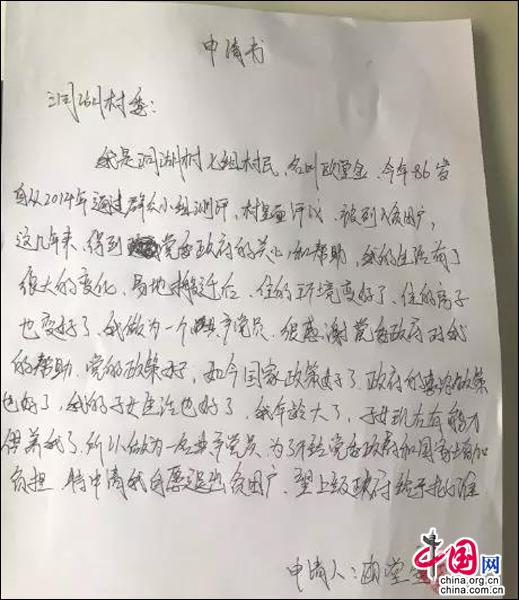 申请书
洞湖村委：
我是洞湖村七组村民，名叫欧堂金，今年86岁
自从2014年通过群众小组测评，村里评议，被列入贫困户，
这几年来，得到党委政府的关心和帮助，我的生活有了
很大的变化，易地搬迁后，住的环境变好了，住的房子
也变好了，我做为一个共产党员，很感谢党委政府对我
的帮助，党的政策好，如今国家政策好了，政府的惠农政策
也好了，我的子女生活也好了，我年龄大了，子女现在有能力
供养我了，所以做为一名共产党员，为了不给党委政府和国家增加
负担，特申请我自愿退出贫困户，望上级政府给予批准
申请人：欧堂金
中国网
china.org.cn
china.com.cn